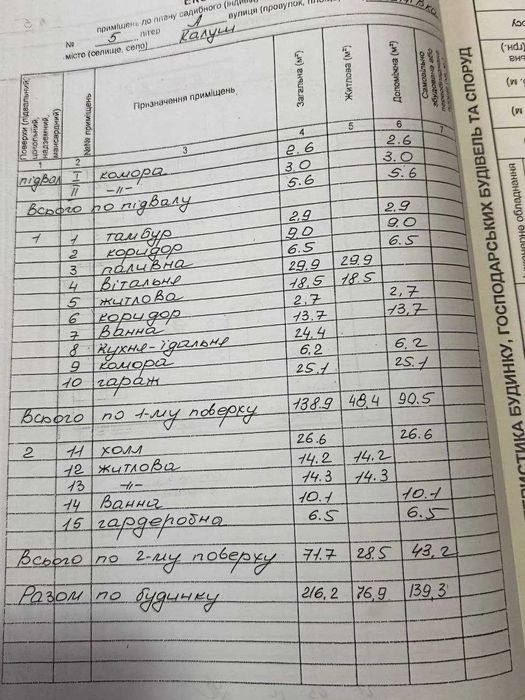 приміщень до плану садибного
№ 5 літер А вулиця (провулок,
місто (селище, село) Калуш
Поверхи (підвальний, цокольний, надземний, мансардний) №№ приміщень Призначення приміщень Загальна (м²) Житлова (м²) Допоміжна (м²) Самовільно
1 2 3 4 5 6 7
підвал I комора 2.6 2.6
II -//- 3.0 3.0
Всього по підвалу 5.6 5.6
1 1 тамбур 2,9 2.9
2 коридор 9.0 9.0
3 паливна 6.5 6.5
4 Вітальня 29.9 29.9
5 житлова 18.5 18.5
6 коридор 2,7 2,7
7 Ванна 13.7 13.7
8 Кухня-їдальня 24.4
9 комора 6.2 6.2
10 гараж 25.1 25.1
Всього по 1-му поверху 138.9 48,4 90.5
2 11 холл 26.6 26.6
12 житлова 14.2 14.2
13 -//- 14.3 14.3
14 Ванна 10.1 10.1
15 гардеробна 6.5 6.5
Всього по 2-му поверху 71.7 28.5 43,2
Разом по будинку 216,2 76,9 139,3
БУДИНКУ, ГОСПОДАРСЬКИХ БУДІВЕЛЬ ТА СПОРУД
обладнання